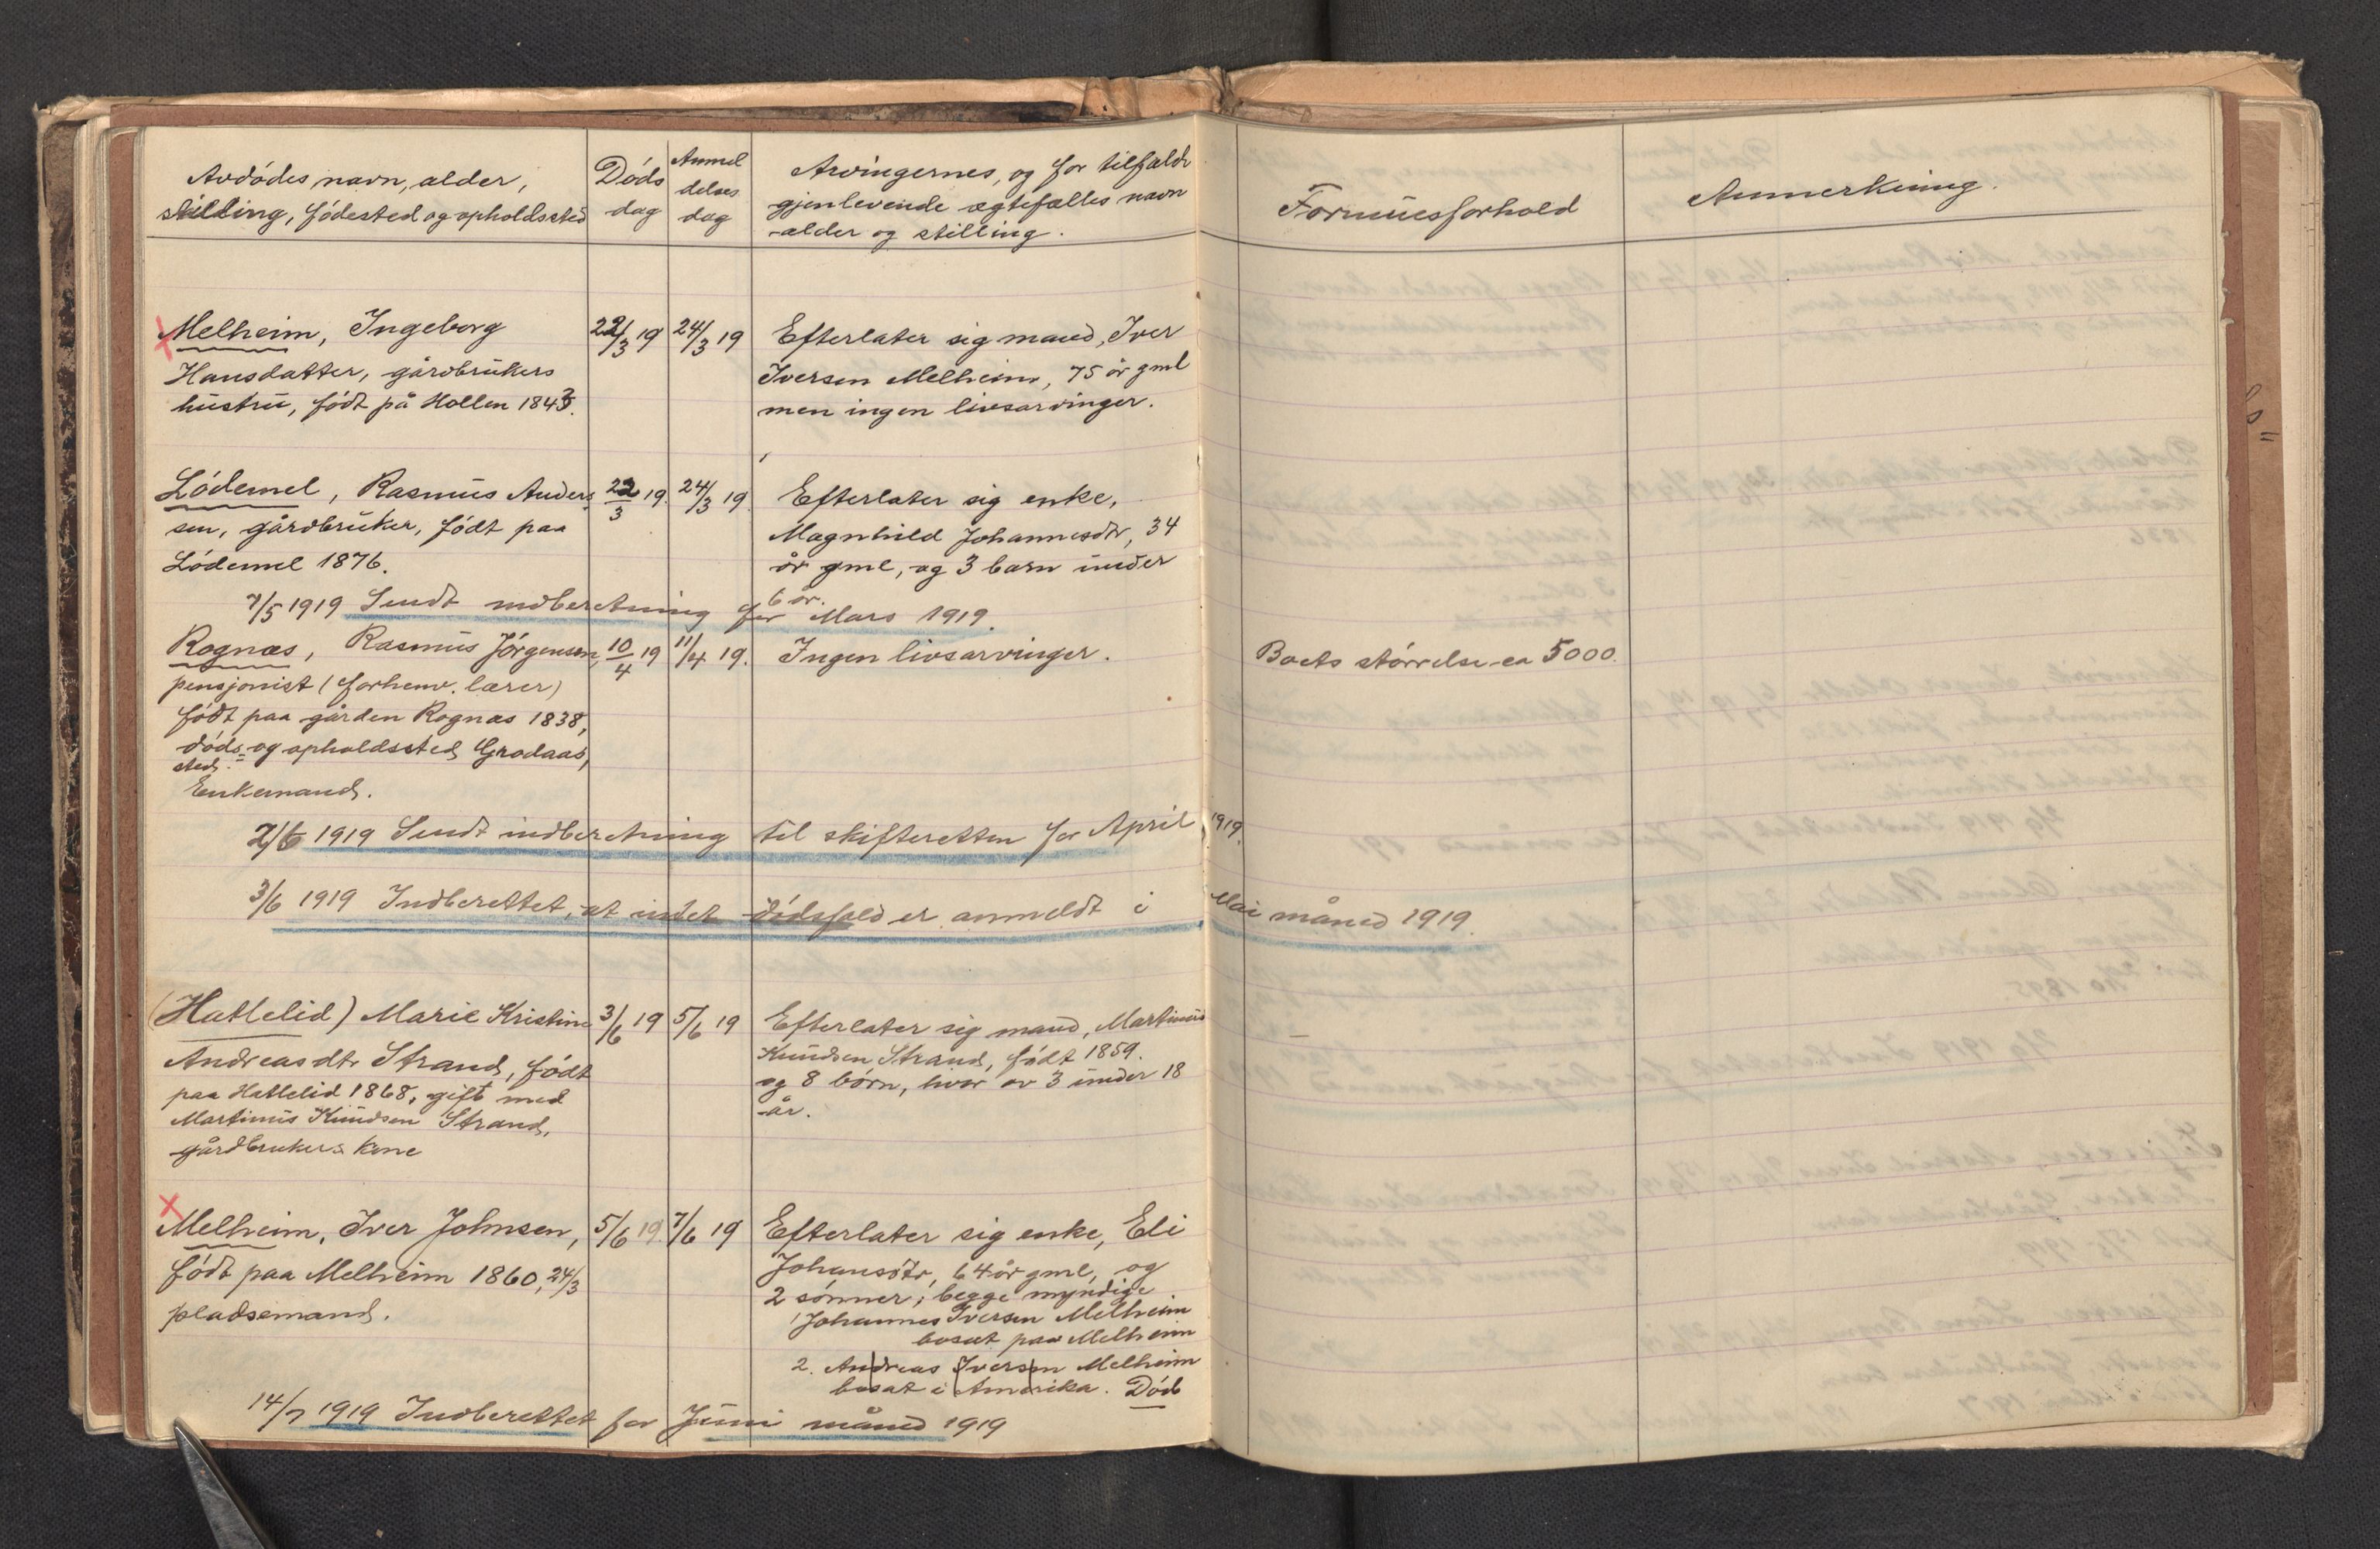 Avdødes navn, alder,
stilling, fødested og opholdssted
Døds
dag
Anmel
delses
dag
Arvingernes, og for tilfælde
gjenlevende ægtefælles navn
alder og stilling.
Formuesforhold
Anmerkning.
Melheim, Ingeborg
Hansdatter, gårdbrukers
hustru, født på Hollen 1843.
22/3 19
24/3 19
Efterlater sig mand, Iver
Iversen Melheim, 75 år gml
men ingen livsarvinger.
Lødemel, Rasmus Anders
sen, gårdbruker, født paa
Lødemel 1876.
22/3 19.
24/3 19.
Efterlater sig enke,
Magnhild Johannesdtr, 34
år gml, og 3 barn under
6 år.
7/5 1919 Sendt indberetning for Mars 1919.
Rognæs, Rasmus Jørgensen,
pensjonist (forhenv. lærer)
født paa gården Rognæs 1838,
døds- og opholdssted Grodaas,
sted
Enkemand.
10/4 19
11/4 19.
Ingen livsarvinger.
Boets størrelse ca 5000.
2/6 1919 Sendt indberetning til skifteretten for April 1919.
3/6 1919 Indberettet, at intet dødsfald er anmeldt i Mai måned 1919.
(Hatlelid) Marie Kristine
Andreasdtr Strand, født
paa Hatlelid 1868, gift med
Martinus Knudsen Strand,
gårdbrukers kone
3/6 19
5/6 19
Efterlater sig mand, Martinus
Knudsen Strand, født 1859.
og 8 børn, hvor av 3 under 18
år.
Melheim, Iver Johnsen,
født paa Melheim 1860, 24/3
pladsemand.
5/6 19.
7/6 19
Efterlater sig enke, Eli
Johansdtr, 64 år gml, og
2 sønner, begge myndige
1 Johannes Iversen Melheim
bosat paa Melheim
2. Andreas Iversen Melheim
bosat i Amerika. Død
14/7 1919 Indberettet for Juni måned 1919